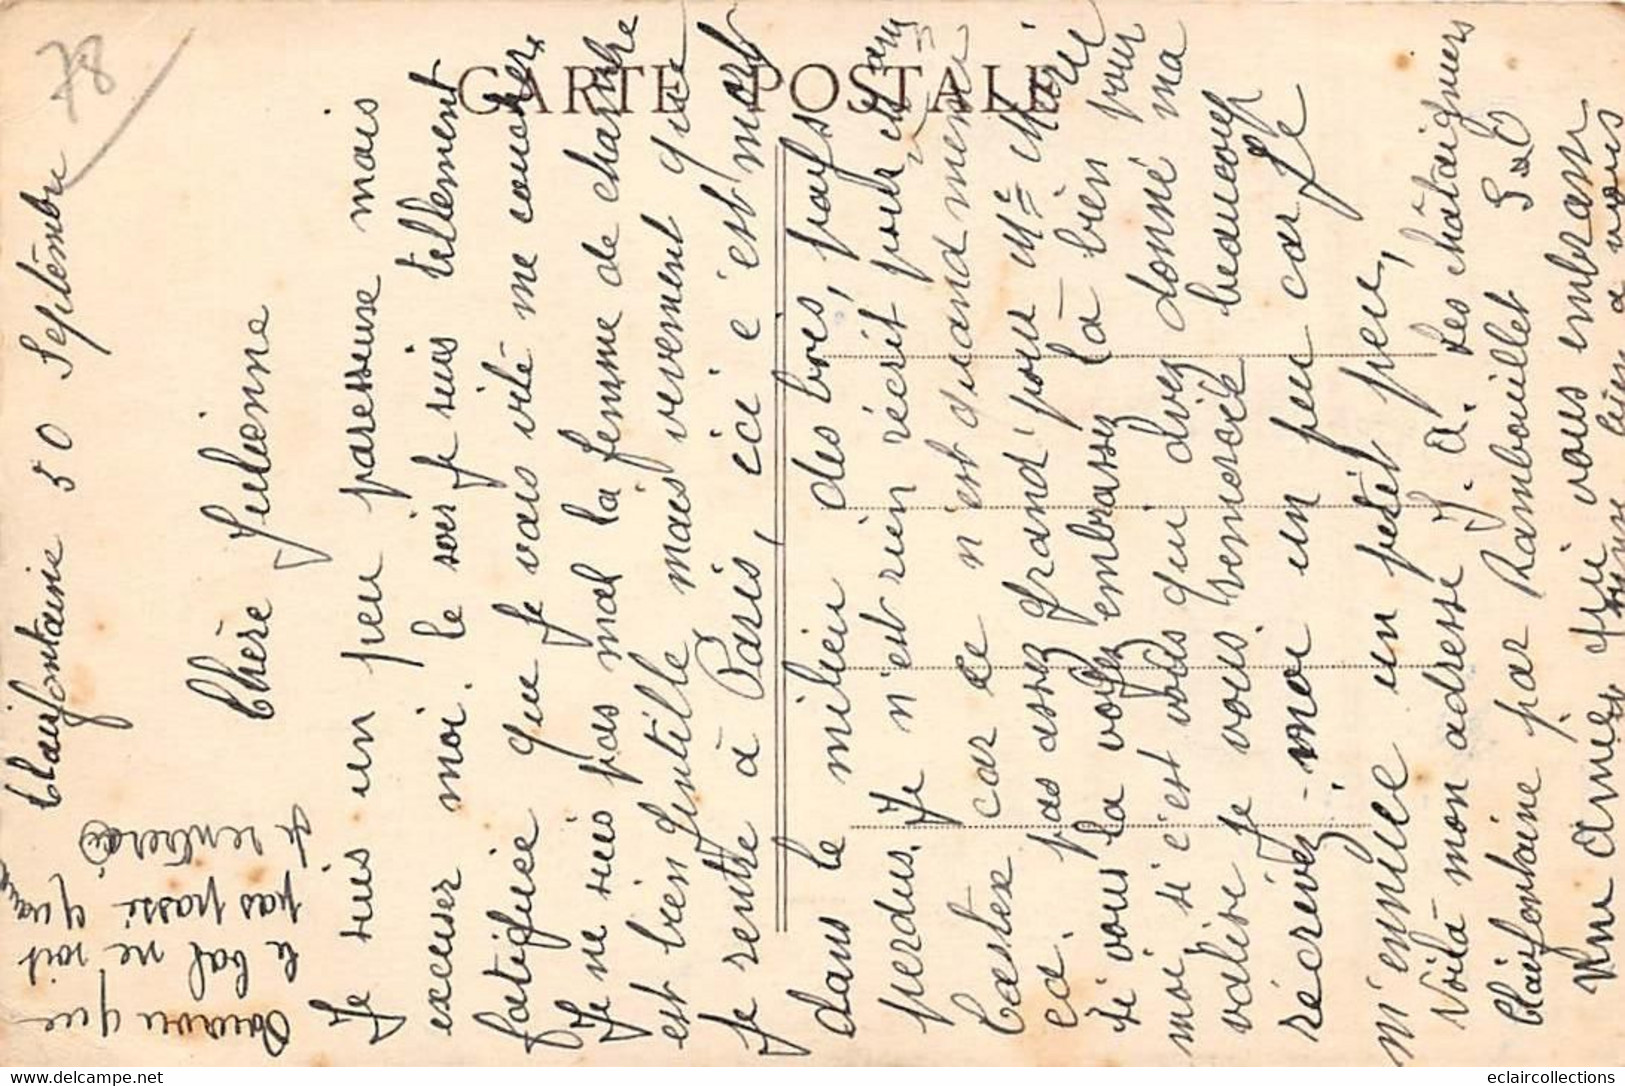 78
CARTE POSTALE
Clairfontaine 30 Septembre
Chère Julienne
Je suis un peu paresseuse mais
excuser moi. le soir je suis tellement
fatiguée que je vais vite me coucher
Je ne suis pas mal la femme de chambre
est bien gentille mais vivement que
je rentre à Paris, ici c'est mort
dans le milieu des bois, parfs
perdus. Je n'est rien récrit pour M
Castex car ce n'est quand même
ca. pas assez grand pour Me Marie
si vous la voyez embrassez la bien pour
moi si c'est vous qui avez donné ma
valise je vous remercie beaucoup
récrivez-moi un peu car je
m'ennuie un petit peu,
Voilà mon adresse J. A. Les chataigniers
Clairfontaine par Rambouillet S-O
Une Amie qui vous embrasse
bien à vous
pourvu que
le bal ne soit
pas passé quand
je rentrerai
eclaircollections
www.delcampe.net